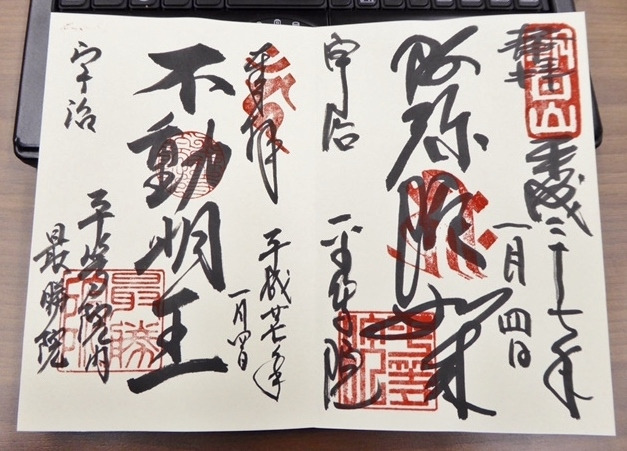 奉拝
平成二十七年
一月四日
阿弥陀如来
宇治
平等院
奉拝
平成廿七年
一月四日
不動明王
宇治
平等院内
最勝院
最勝